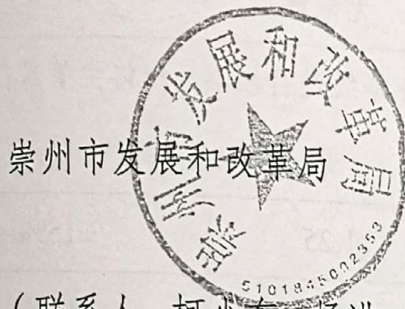 崇州市发展和改革局
崇州市发展和改革局
5101845002353
（联系人